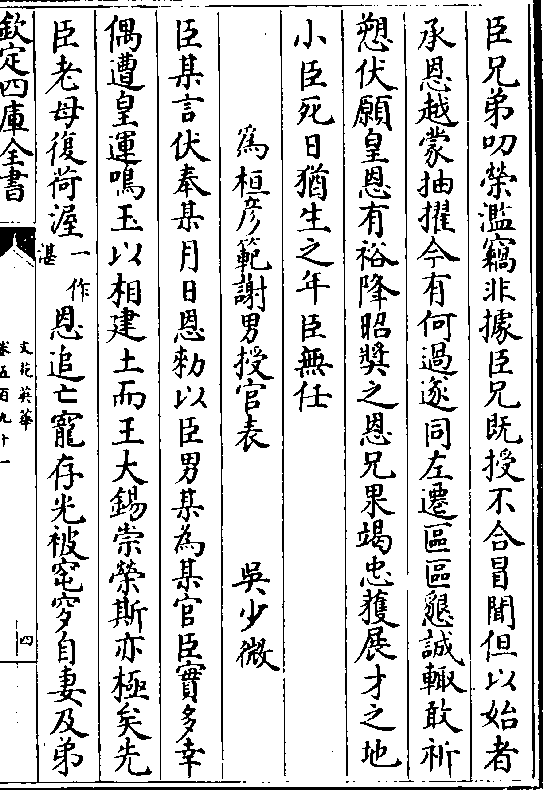 臣兄弟叨榮濫竊非據臣兄既授不合冒聞但以始者
承恩越蒙抽擢今有何過遂同左遷區區懇誠輙敢祈
愬伏願皇恩有裕降昭奬之恩兄果竭忠蒦展才之地
小臣死日猶生之年臣無任
爲桓彦範謝男授官表
吳少微
臣某言伏奉某月日恩勑以臣男某為某官臣實多幸
偶遭皇運鳴玉以相建土而王大錫崇榮斯亦極矣先
臣老母復荷渥一作湛恩追亡寵存光被窀穸自妻及弟
欽定四庫全書
文苑英華
卷五百九十一
四